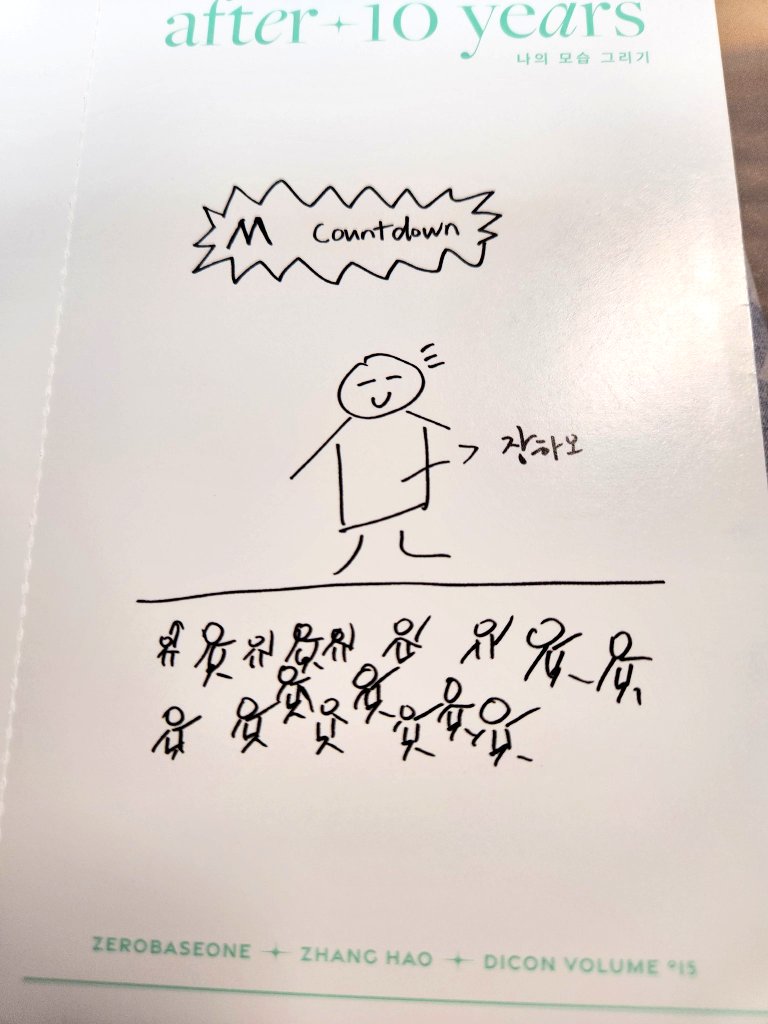 after + 10 years
나의 모습 그리기
M Countdown
장하오
ZEROBASEONE + ZHANG HAO + DICON VOLUME º15